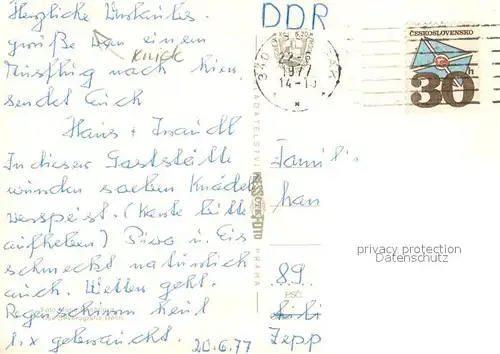 Herzliche Urlaubs-
grüße von einem
Knick
Ausflug nach hier,
sendet Euch
Hans + Traudl
In dieser Gaststätte
wurden soeben Knödel
verspeist. (Karte bitte
aufheben) Pivo u. Eis
schmeckt natürlich
auch. Wetter geht.
Regenschirm heut
1 x gebraucht. 20.6.77
DDR
1977
ČESKOSLOVENSKO
30h
PRESSFOTO
PRAHA
Famili
han
privacy protection
Datenschutz
89
PSČ
Zepp